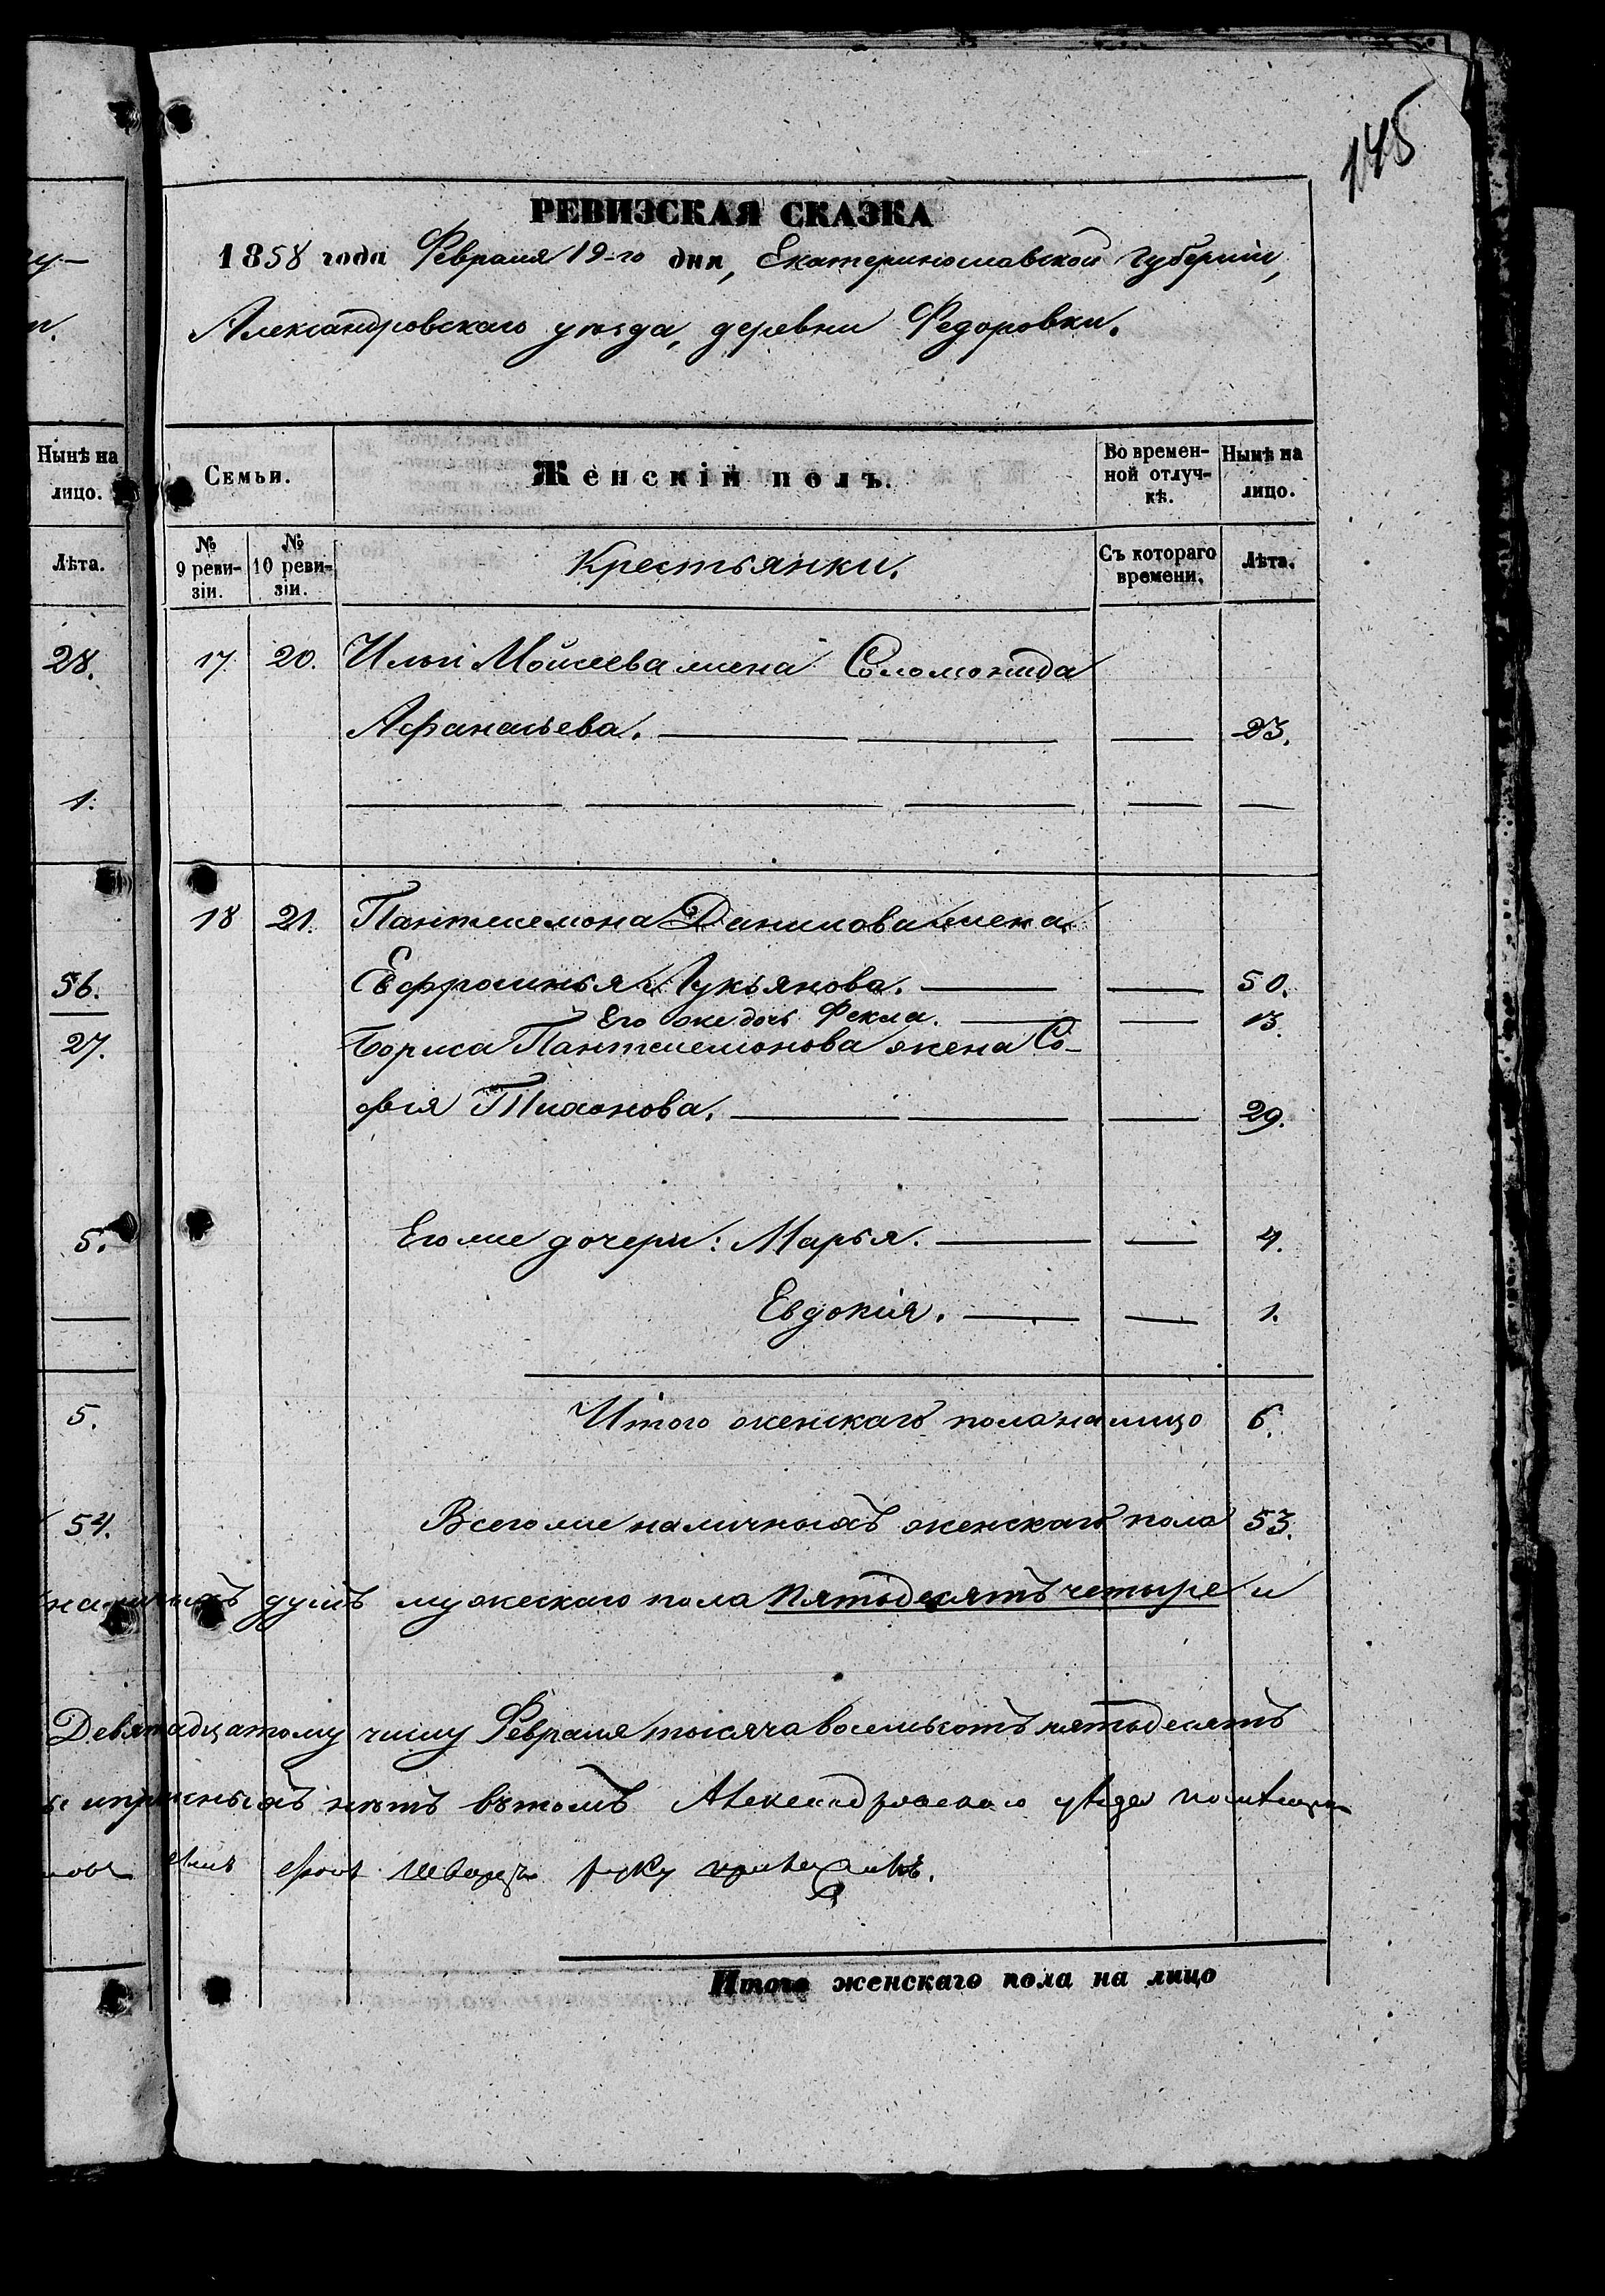 145
РЕВИЗСКАЯ СКАЗКА
1858 года Февраля 19-го дня, Екатеринославской Губерніи,
Александровскаго уѣзда, деревни Федоровки.
Нынѣ на лицо.
Лѣта.
28.
1.
56.
27.
5.
5.
54.
Семьи.
Женскій полъ.
Во времен-
ной отлуч-
кѣ.
Нынѣ на
лицо.
№
9 реви-
зіи.
№
10 реви-
зіи.
Крестьянки.
Съ котораго
времени.
Лѣта.
17. 20. Ильи Мойсеева жена Соломонида
Афанасьева. 23.
18 21. Пантелемона Данилова жена
Евфросинья Лукьянова. 50.
Его же дочь Фекла. 13.
Бориса Пантелемонова жена Со-
фія Тихонова. 29.
Его же дочери: Марья. 4.
Евдокія. 1.
Итого женскаго пола на лицо 6.
Всего же наличныхъ женскаго пола 53.
наличныхъ душъ мужескаго пола пятьдесятъ четыре и
Девятнадцатому числу Февраля тысяча восемьсотъ пятьдесятъ
нѣтъ въ томъ Александровскаго уѣзда помѣщикъ
руку приложилъ.
Итого женскаго пола на лицо